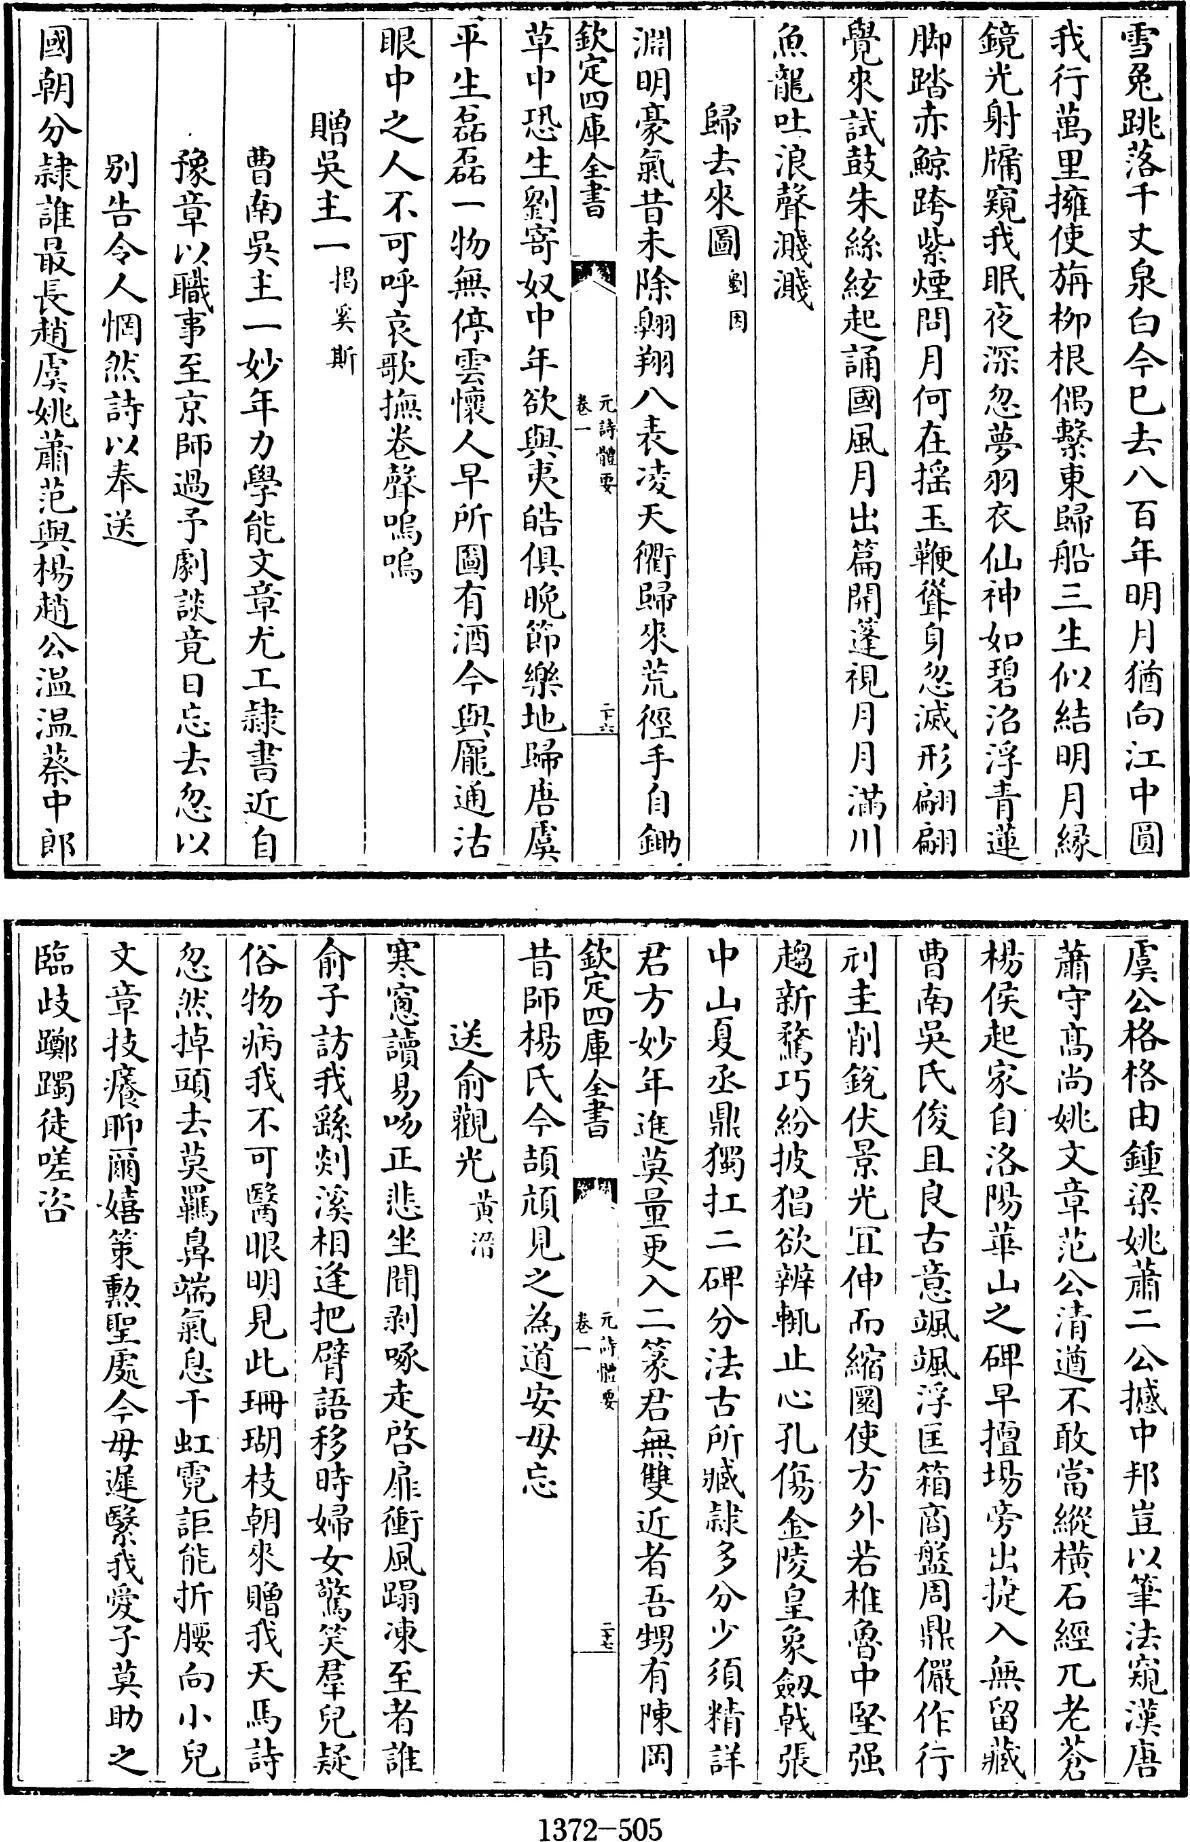 雪兔跳落千丈泉白今已去八百年明月猶向江中圓
我行萬里擁使旃柳根偶繫東歸船三生似結明月緣
鏡光射牖窺我眠夜深忽夢羽衣仙神如碧沼浮青蓮
脚踏赤鯨跨紫煙問月何在揺玉鞭聳身忽滅形翩翩
覺來試鼓朱絲絃起誦國風月出篇開蓬視月月滿川
魚龍吐浪聲濺濺
歸去來圖 劉因
淵明豪氣昔未除翺翔八表凌天衢歸來荒徑手自鋤
欽定四庫全書 元詩體要 卷一 二十六
草中恐生劉寄奴中年欲與夷皓俱晩節樂地歸唐虞
平生磊磊一物無停雲懷人早所圖有酒今與龎通沽
眼中之人不可呼哀歌撫卷聲嗚嗚
贈吳主一 揭奚斯
曹南吳主一妙年力學能文章尤工隷書近自
豫章以職事至京師過予劇談竟日忘去忽以
别告令人惘然詩以奉送
國朝分隷誰最長趙虞姚蕭范與楊趙公温温蔡中郎
虞公格格由鍾梁姚蕭二公撼中邦豈以筆法窺漢唐
蕭守髙尚姚文章范公清遒不敢當縱横石經兀老蒼
楊侯起家自洛陽華山之碑早擅塲旁出捷入無留藏
曹南吳氏俊且良古意颯颯浮匡箱商盤周鼎儼作行
刓圭削銳伏景光宜伸而縮圜使方外若椎魯中堅强
趨新騖巧紛披猖欲辨輒止心孔傷金陵皇象劔戟張
中山夏丞鼎獨扛二碑分法古所臧隷多分少須精詳
君方妙年進莫量更入二篆君無雙近者吾甥有陳岡
欽定四庫全書 元詩體要 卷一 二十七
昔師楊氏今頡頏見之為道安毋忘
送俞觀光 黄溍
寒窻讀易吻正悲坐聞剥啄走啓扉衝風蹋凍至者誰
俞子訪我繇剡溪相逢把臂語移時婦女驚笑羣兒疑
俗物病我不可醫眼明見此珊瑚枝朝來贈我天馬詩
忽然掉頭去莫羈鼻端氣息干虹霓詎能折腰向小兒
文章技癢聊爾嬉策勲聖處今毋遲繄我愛子莫助之
臨歧躑躅徒嗟咨
1372-505